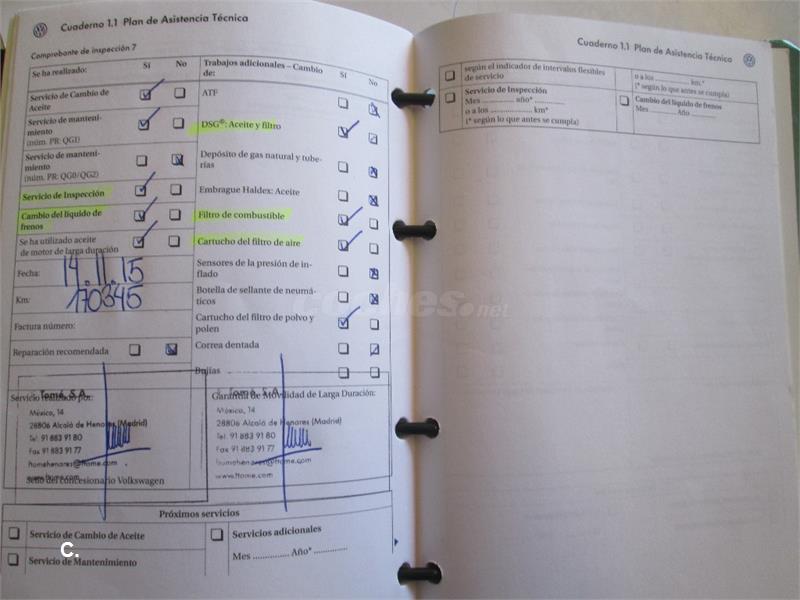 Cuaderno 1.1 Plan de Asistencia Técnica
Comprobante de inspección 7
Se ha realizado: Sí No
Servicio de Cambio de
Aceite
Servicio de manteni-
miento
(núm. PR: QG1)
Servicio de manteni-
miento
(núm. PR: QG0/QG2)
Servicio de Inspección
Cambio del líquido de
frenos
Se ha utilizado aceite
de motor de larga duración
Fecha: 14.11.15
Km: 170345
Factura número:
Reparación recomendada
Trabajos adicionales – Cambio
de: Sí No
ATF
DSG®: Aceite y filtro
Depósito de gas natural y tube-
rías
Embrague Haldex: Aceite
Filtro de combustible
Cartucho del filtro de aire
Sensores de la presión de in-
flado
Botella de sellante de neumá-
ticos
Cartucho del filtro de polvo y
polen
Correa dentada
Bujías
Servicio realizado por:
Tomé, S.A.
México, 14
28806 Alcalá de Henares (Madrid)
Tel: 91 883 91 80
Fax 91 883 91 77
ftomehenares@ftome.com
www.ftome.com
Sello del concesionario Volkswagen
Garantía de Movilidad de Larga Duración:
Tomé, S.A.
México, 14
28806 Alcalá de Henares (Madrid)
Tel: 91 883 91 80
Fax 91 883 91 77
ftomehenares@ftome.com
www.ftome.com
Próximos servicios
Servicio de Cambio de Aceite
Servicio de Mantenimiento
Servicios adicionales
Mes .............. Año* ..............
C.
coches.net
Cuaderno 1.1 Plan de Asistencia Técnica
según el indicador de intervalos flexibles
de servicio
o a los .................. km*
(* según lo que antes se cumpla)
Servicio de Inspección
Mes .............. año* ..............
o a los .................. km*
(* según lo que antes se cumpla)
Cambio del líquido de frenos
Mes .............. Año ..............